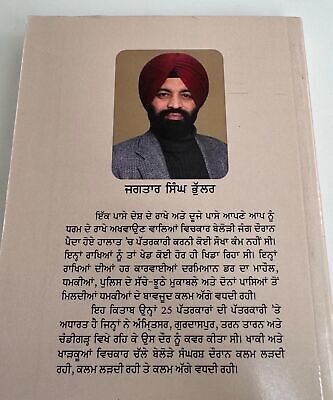 ਜਗਤਾਰ ਸਿੰਘ ਭੁੱਲਰ
ਇੱਕ ਪਾਸੇ ਦੇਸ਼ ਦੇ ਰਾਖੇ ਅਤੇ ਦੂਜੇ ਪਾਸੇ ਆਪਣੇ ਆਪ ਨੂੰ
ਧਰਮ ਦੇ ਰਾਖੇ ਅਖਵਾਉਣ ਵਾਲਿਆਂ ਵਿਚਕਾਰ ਬੇਲੋੜੀ ਜੰਗ ਦੌਰਾਨ
ਪੈਦਾ ਹੋਏ ਹਾਲਾਤ 'ਚ ਪੱਤਰਕਾਰੀ ਕਰਨੀ ਕੋਈ ਸੌਖਾ ਕੰਮ ਨਹੀਂ ਸੀ।
ਇਨ੍ਹਾਂ ਰਾਖਿਆਂ ਨੂੰ ਤਾਂ ਖੇਡ ਕੋਈ ਹੋਰ ਹੀ ਖਿਡਾ ਰਿਹਾ ਸੀ। ਇਨ੍ਹਾਂ
ਰਾਖਿਆਂ ਦੀਆਂ ਹਰ ਕਾਰਵਾਈਆਂ ਦਰਮਿਆਨ ਡਰ ਦਾ ਮਾਹੌਲ,
ਧਮਕੀਆਂ, ਪੁਲਿਸ ਦੇ ਸੱਚੇ-ਝੂਠੇ ਮੁਕਾਬਲੇ ਅਤੇ ਦੋਨਾਂ ਪਾਸਿਆਂ ਤੋਂ
ਮਿਲਦੀਆਂ ਧਮਕੀਆਂ ਦੇ ਬਾਵਜੂਦ ਕਲਮ ਅੱਗੇ ਵਧਦੀ ਰਹੀ।
ਇਹ ਕਿਤਾਬ ਉਨ੍ਹਾਂ 25 ਪੱਤਰਕਾਰਾਂ ਦੀ ਪੱਤਰਕਾਰੀ 'ਤੇ
ਅਧਾਰਤ ਹੈ ਜਿਨ੍ਹਾਂ ਨੇ ਅੰਮ੍ਰਿਤਸਰ, ਗੁਰਦਾਸਪੁਰ, ਤਰਨ ਤਾਰਨ ਅਤੇ
ਚੰਡੀਗੜ੍ਹ ਵਿਖੇ ਰਹਿ ਕੇ ਉਸ ਦੌਰ ਨੂੰ ਕਵਰ ਕੀਤਾ ਸੀ। ਖਾਕੀ ਅਤੇ
ਖਾੜਕੂਆਂ ਵਿਚਕਾਰ ਚੱਲੇ ਬੇਲੋੜੇ ਸੰਘਰਸ਼ ਦੌਰਾਨ ਕਲਮ ਲੜਦੀ
ਰਹੀ, ਕਲਮ ਲੜਦੀ ਰਹੀ ਤੇ ਕਲਮ ਅੱਗੇ ਵਧਦੀ ਰਹੀ।